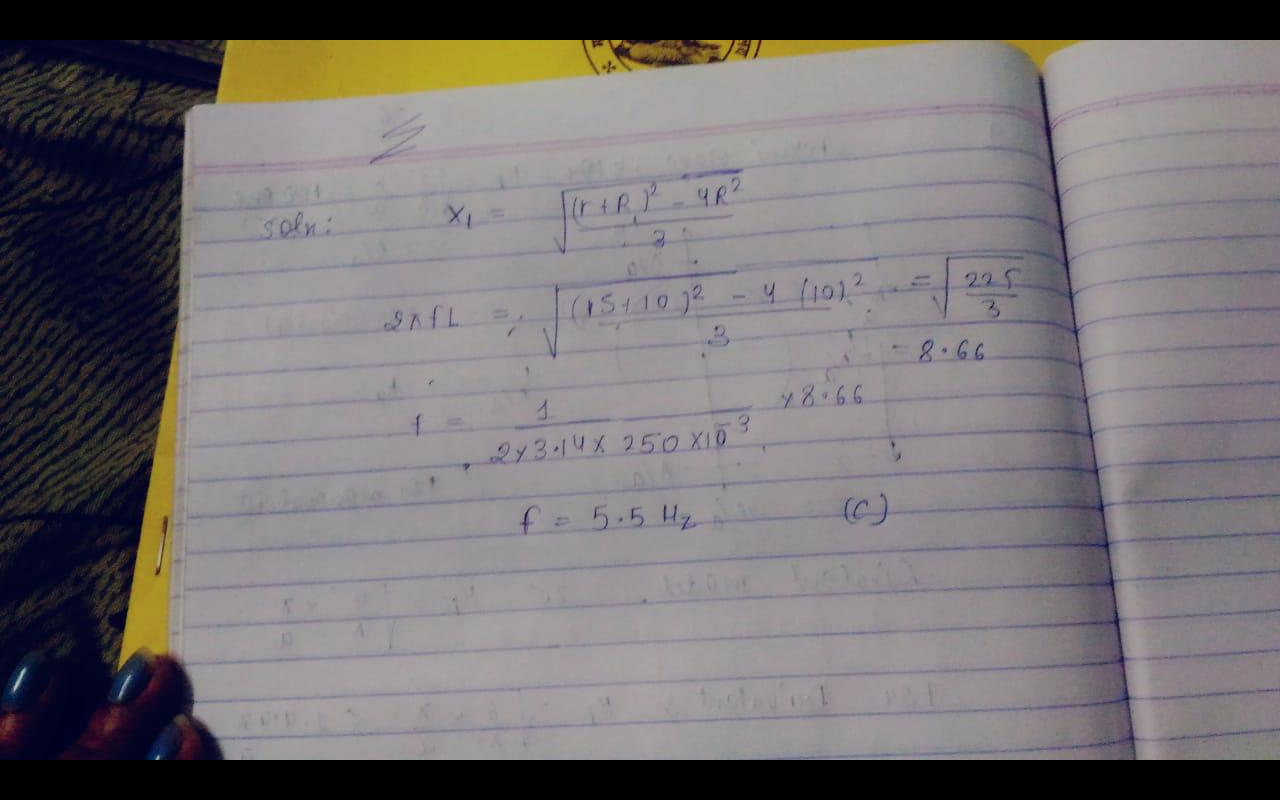 Soln: X₁ = √((r+R)² - 4R² / 3)
2πfL = √((15+10)² - 4 (10)² / 3) = √(225 / 3)
= 8.66
f = 1 / (2×3.14× 250 ×10⁻³) × 8.66
f = 5.5 Hz (C)